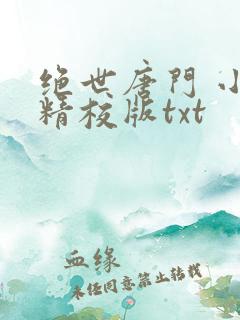 绝世唐门 小
精校版txt
血缘
未经同意禁止转载